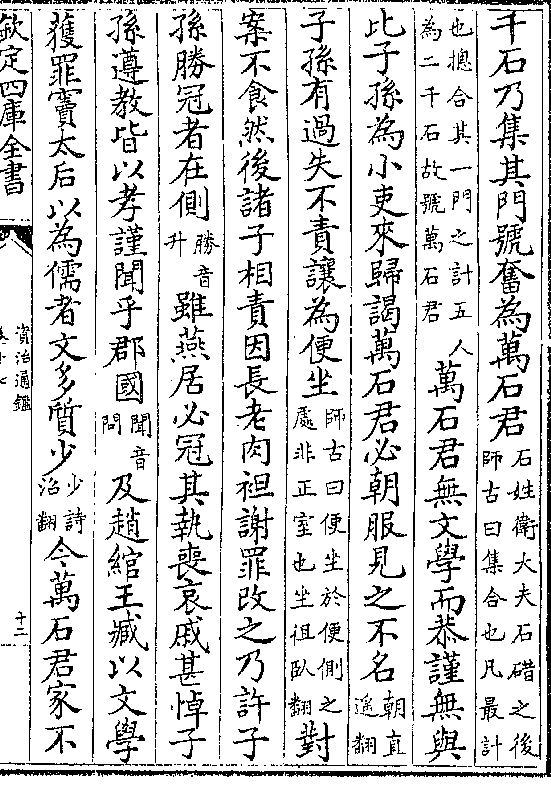 千石乃集其門號奮為萬石君石姓衛大夫石碏之後師古曰集合也凡最計
也摠合其一門之計五人為二千石故號萬石君萬石君無文學而恭謹無與
比子孫為小吏來歸謁萬石君必朝服見之不名朝直遥翻
子孫有過失不責讓為便坐師古曰便坐於便側之處非正室也坐徂臥翻對
案不食然後諸子相責因長老肉袒謝罪改之乃許子
孫勝冠者在側勝音升雖燕居必冠其執喪哀戚甚悼子
孫遵教皆以孝謹聞乎郡國聞音問及趙綰王臧以文學
獲罪竇太后以為儒者文多質少少詩沼翻今萬石君家不
欽定四庫全書
資治通鑑
卷十七
十二